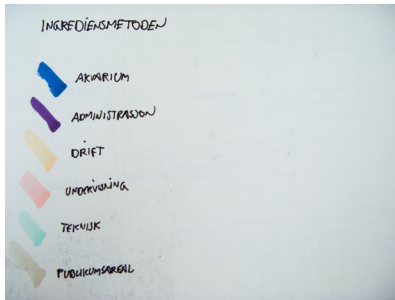 INGREDIENSMETODEN
AKVARIUM
ADMINISTRASJON
DRIFT
UNDERVISNING
TEKNISK
PUBLIKUMSAREAL